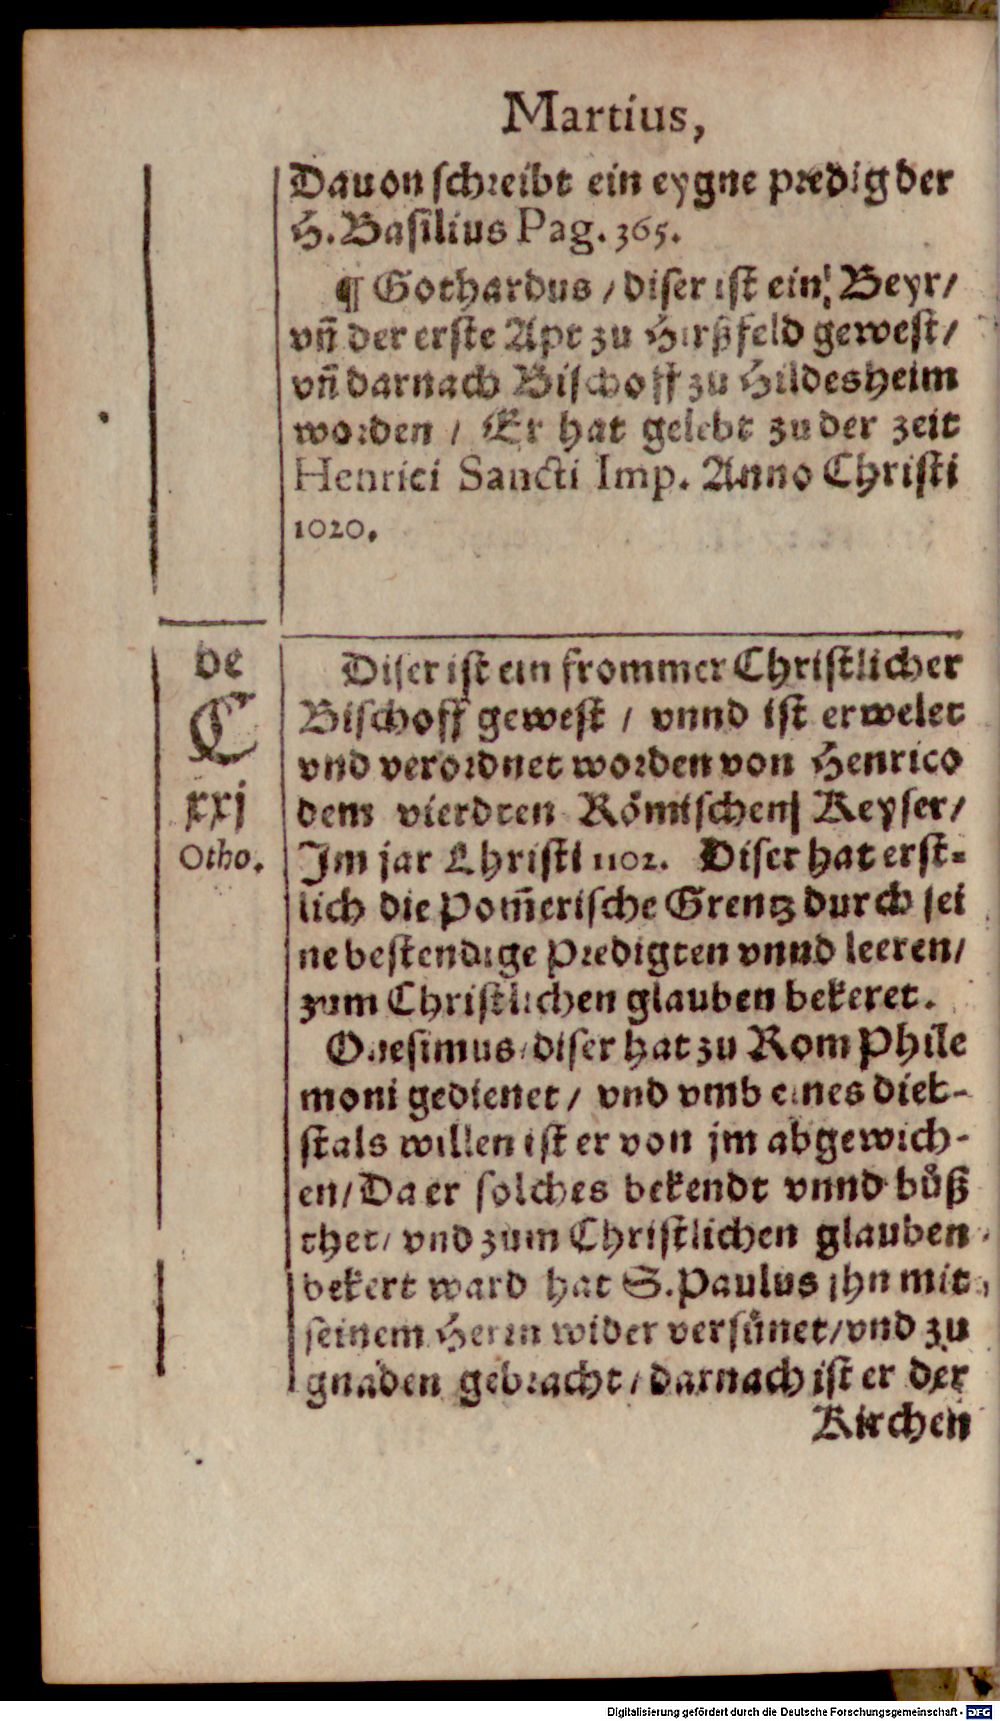 Martius,
Dauon schreibt ein eygne predig der
H. Basilius Pag. 365.
¶ Gothardus / diser ist ein Beyr /
vñ der erste Apt zu Hirßfeld gewest /
vñ darnach Bischoff zu Hildesheim
worden / Er hat gelebt zu der zeit
Henrici Sancti Imp. Anno Christi
1020.
de
C
xxj
Otho.
Diser ist ein frommer Christlicher
Bischoff gewest / vnnd ist erwelet
vnd verordnet worden von Henrico
dem vierdten Römischen Keyser /
Im jar Christi 1102. Diser hat erst-
lich die Pom̃erische Grentz durch sei
ne bestendige Predigten vnnd leeren /
zum Christlichen glauben bekeret.
Onesimus / diser hat zu Rom Phile
moni gedienet / vnd vmb eines dieb-
stals willen ist er von jm abgewich-
en / Da er solches bekendt vnnd buͦß
thet / vnd zum Christlichen glauben
bekert ward hat S. Paulus jhn mit
seinem Herrn wider versünet / vnd zu
gnaden gebracht / darnach ist er der
Kirchen
Digitalisierung gefördert durch die Deutsche Forschungsgemeinschaft - DFG